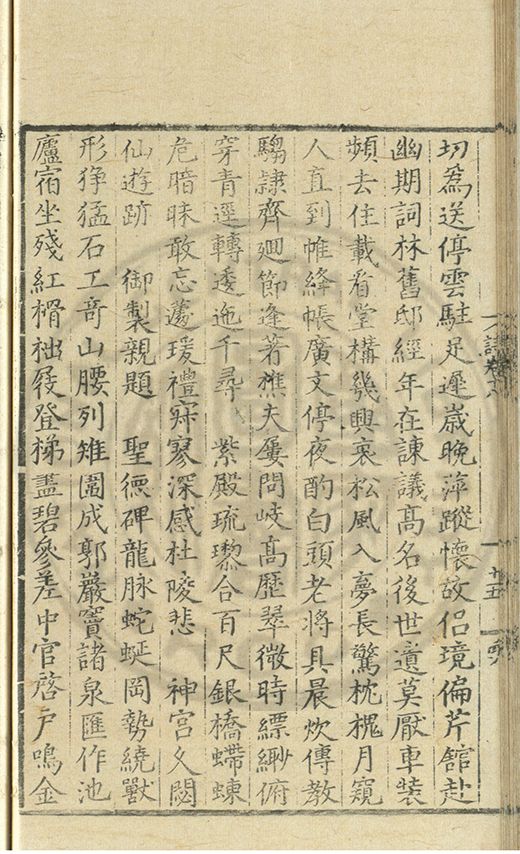 切為送停雲駐足遲歲晚萍蹤懷故侶境偏芹館赴
幽期詞林舊邸經年在諫議高名後世遺莫厭車裝
頻去住載看堂構幾興衰松風入夢長驚枕槐月窺
人直到帷絳帳廣文停夜酌白頭老將具晨炊傳教
騶隸齊廻節逢著樵夫屢問岐高歷翠微時縹緲俯
穿青逕轉逶迤千尋　紫殿琉瓈合百尺銀橋螮蝀
危暗昧敢忘蘧瑗禮寂寥深感杜陵悲　神宮久閟
仙遊跡　御製親題　聖德碑龍脉蛇蜒岡勢繞獸
形猙猛石工竒山腰列雉圍成郭巖竇諸泉匯作池
廬宿坐殘紅榾柮屐登梯盡碧參差中官啓戶鳴金
十五